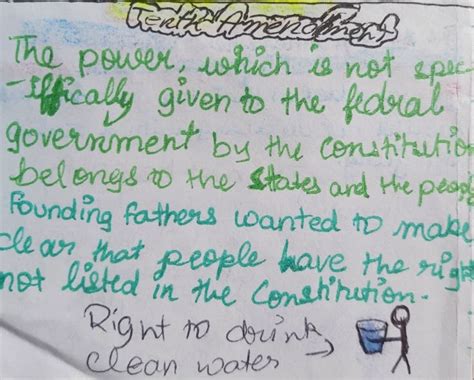 Tenth Amendment
The power, which is not spec
-iffically given to the fedral
government by the constitution
belongs to the States and the people
Founding fathers wanted to make
clear that people have the right
not listed in the Constitution.
Right to drink
clean water